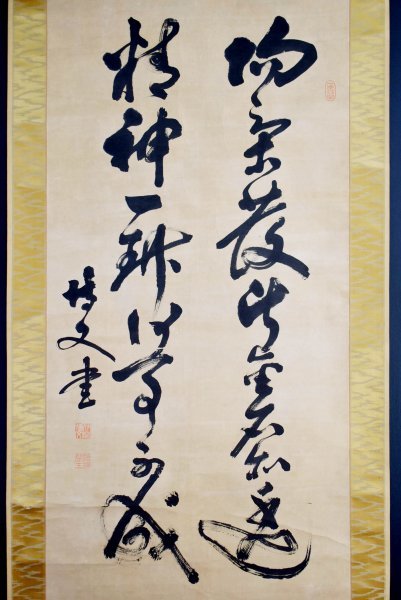 陽氣發處金石亦透
精神一到何事不成
博文書